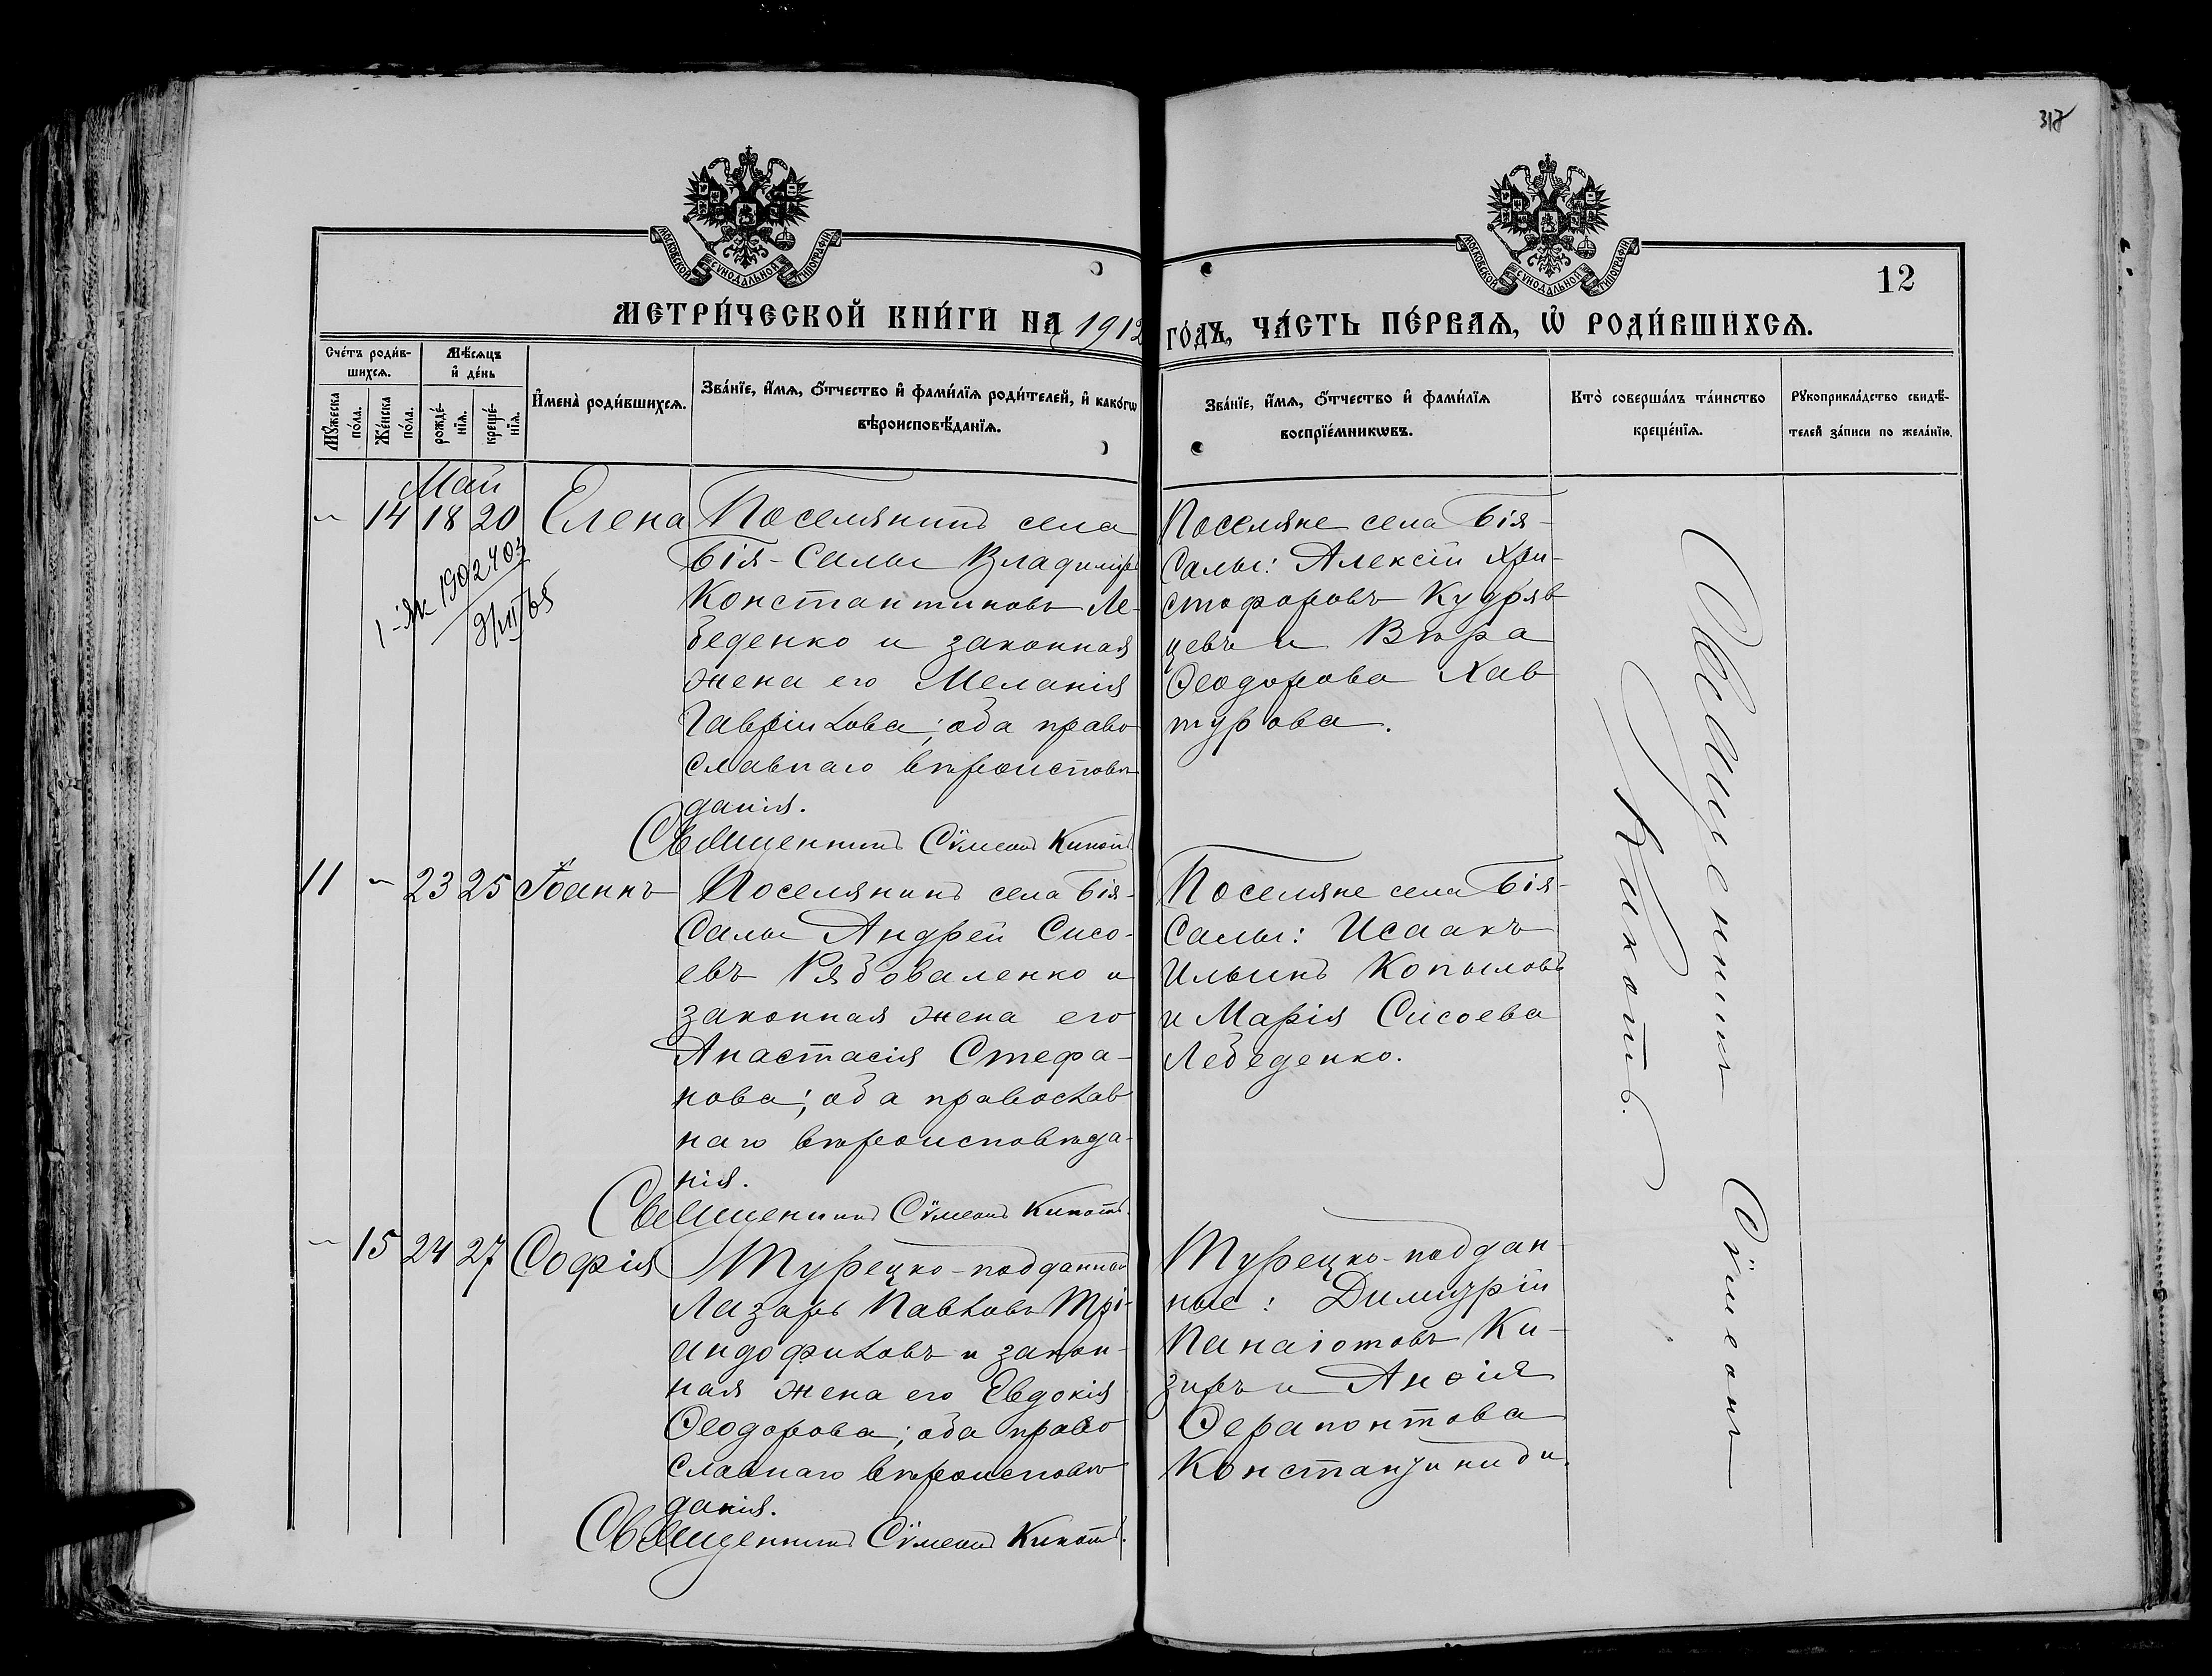 317
МОСКОВСКОЙ СѴНОДАЛЬНОЙ ТИПОГРАФІИ
МОСКОВСКОЙ СѴНОДАЛЬНОЙ ТИПОГРАФІИ
12
МЕТРИ́ЧЕСКОЙ КНИ́ГИ НА 1912 ГО́ДЪ, ЧА́СТЬ ПЕ́РВАѦ, Ѡ҆ РОДИ́ВШИХСѦ.
Сче́тъ роди́в-
шихсѧ.
Мꙋ́жеска по́ла.
Же́нска по́ла.
Мѣ́сѧцъ
и҆ де́нь
рожде́-нїѧ.
креще́-нїѧ.
И҆мена̀ роди́вшихсѧ.
Зва́нїе, и҆́мѧ, ѻ҆́тчество и҆ фами́лїѧ роди́телей, и҆ како́гѡ
вѣроисповѣ́данїѧ.
Зва́нїе, и҆́мѧ, ѻ҆́тчество и҆ фами́лїѧ
воспрїе́мникѡвъ.
Кто̀ соверша́лъ та́инство
креще́нїѧ.
Рꙋкоприкла́дство свидѣ́-
телей за́писи по жела́нїю.
Май
– 14 18 20 Елена
Поселянинъ села
Бія-Салы Владиміръ
Константиновъ Ле-
беденко и законная
жена его Меланія
Гавріилова; оба право
славнаго вѣроисповѣ
данія.
Священникъ Сѵмеонъ Кикотъ.
Поселяне села Бія-
Салы: Алексій Хри-
стофоровъ Кудряв
цевъ и Вѣра
Ѳеодорова Хав
турова.
11 – 23 25 Іоаннъ
Поселянинъ села Бія-
Салы Андрей Сисо-
евъ Рябоваленко и
законная жена его
Анастасія Стефа-
нова; оба православ
наго вѣроисповѣда-
нія.
Священникъ Сѵмеонъ Кикотъ.
Поселяне села Бія-
Салы: Исаакъ
Ильинъ Копыловъ
и Марія Сисоева
Лебеденко.
– 15 24 27 Софія
Турецко-подданный
Лазарь Павловъ Трі-
андофиловъ и закон-
ная жена его Евдокія
Ѳеодорова; оба право
славнаго вѣроисповѣ
данія.
Священникъ Сѵмеонъ Кикотъ.
Турецко-поддан-
ные: Димитрій
Панаіотовъ Ки-
зиръ и Анѳія
Ѳерапонтова
Константиниди.
Священникъ Сѵмеонъ
Кикотъ.